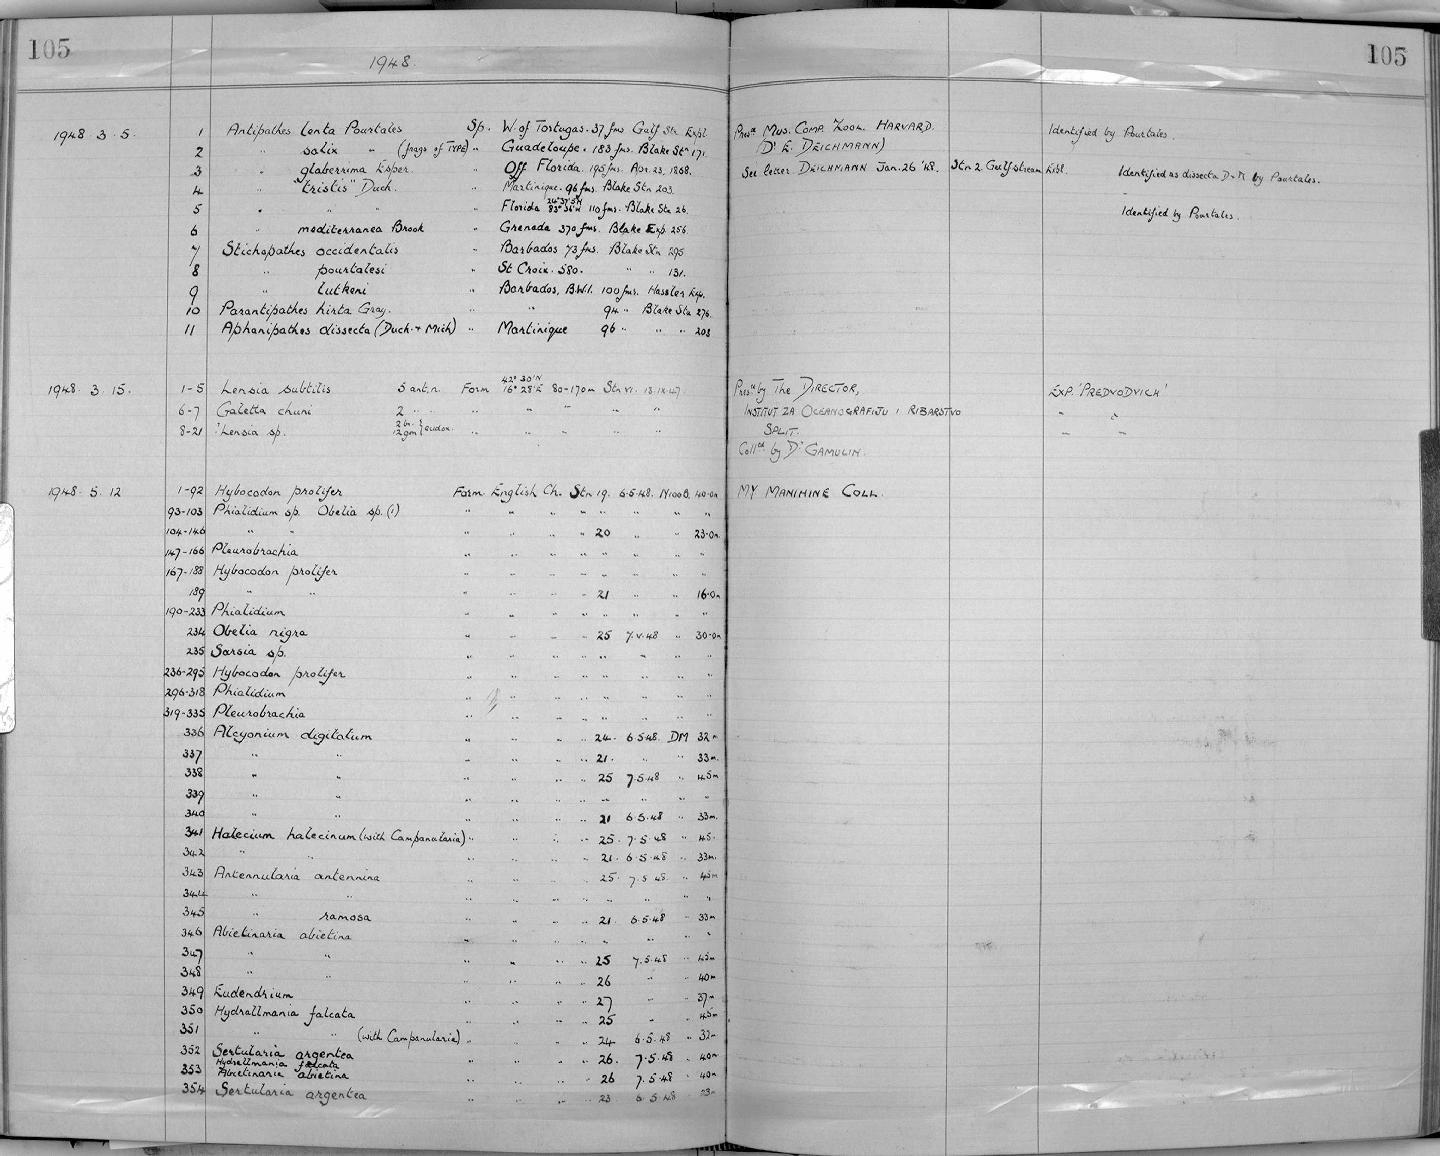 105
105
1948.
1948. 3. 5. 1 Antipathes lenta Pourtales Sp. W. of Tortugas. 37 fms Gulf Str. Expl. Pres.d Mus. Comp. Zool. Harvard. Identified by Pourtales.
2 " salix " (frags of TYPE) " Guadeloupe. 183 fms. Blake Stn 171. (Dr E. Deichmann)
3 " glaberrima Esper. " Off Florida. 195 fms. Apr. 23. 1868. See letter Deichmann Jan. 26 '48. Stn 2. Gulf stream Expl. Identified as dissecta D + M by Pourtales.
4 " "tristis" Duch. " Martinique. 96 fms. Blake Stn 203.
5 " " " " Florida 83° 36' W 110 fms. Blake Stn 26. Identified by Pourtales.
6 " mediterranea Brook " Grenada 370 fms. Blake Exp. 256.
7 Stichopathes occidentalis " Barbados 73 fms. Blake Stn 295
8 " pourtalesi " St Croix. 580. " " 131.
9 " lutkeni " Barbados, B.W.I. 100 fms. Hassler Exp.
10 Parantipathes hirta Gray. " " 94 " Blake Stn 276.
11 Aphanipathes dissecta (Duch. + Mich) " Martinique 96 " " " 203
1948. 3. 15. 1-5 Lensia subtilis 5 ant. n. Form 42° 30' N 16° 28' E 80-170m Stn VI. 18.IX.47. Pres.d by The Director, Exp. 'Predvodvich'
6-7 Galetta chuni 2 " " " " " " " Institut za Oceanografiju i Ribarstvo " "
8-21 ?Lensia sp. 2 br. 12 gm } eudox. " " " " " Split. " "
Coll.ed by Dr Gamulin.
1948. 5. 12 1-92 Hybocodon prolifer Form English Ch. Stn 19. 6.5.48. N100B. 40-0m MY Manihine Coll.
93-103 Phialidium sp. Obelia sp. (1) " " " " " " " "
104-146 " " " " " " 20 " " 23-0m.
147-166 Pleurobrachia " " " " " " " "
167-188 Hybocodon prolifer " " " " " " " "
189 " " " " " " 21 " " 16-0m
190-233 Phialidium " " " " " " " "
234 Obelia nigra " " " " 25 7.V.48 " 30-0m
235 Sarsia sp. " " " " " " " "
236-295 Hybocodon prolifer " " " " " " " "
296-318 Phialidium " " " " " " " "
319-335 Pleurobrachia " " " " " " " "
336 Alcyonium digitatum " " " " 24. 6.5.48. DM 32m
337 " " " " " " 21. " " 33m.
338 " " " " " " 25 7.5.48 " 45m
339 " " " " " " " " " "
340 " " " " " " 21 6.5.48 " 33m.
341 Halecium halecinum (with Campanularia) " " " " 25. 7.5.48 " 45.
342 " " " " " " 21. 6.5.48 " 33m.
343 Antennularia antennina " " " " 25. 7.5.48. " 45m
344 " " " " " " " " " "
345 " ramosa " " " " 21. 6.5.48 " 33m
346 Abietinaria abietina " " " " " " "
347 " " " " " " 25 7.5.48 " 45m
348 " " " " " " 26 " " 40m
349 Eudendrium " " " " 27 " " 37m
350 Hydrallmania falcata " " " " 25 " " 45m
351 " " (with Campanularia) " " " " 24 6.5.48 " 32m
352 Sertularia argentea " " " " 26. 7.5.48 " 40m
Hydrallmania falcata
353 Abietinaria abietina " " " " 26 7.5.48 " 40m
354 Sertularia argentea " " " " 23 6.5.48 " 23m